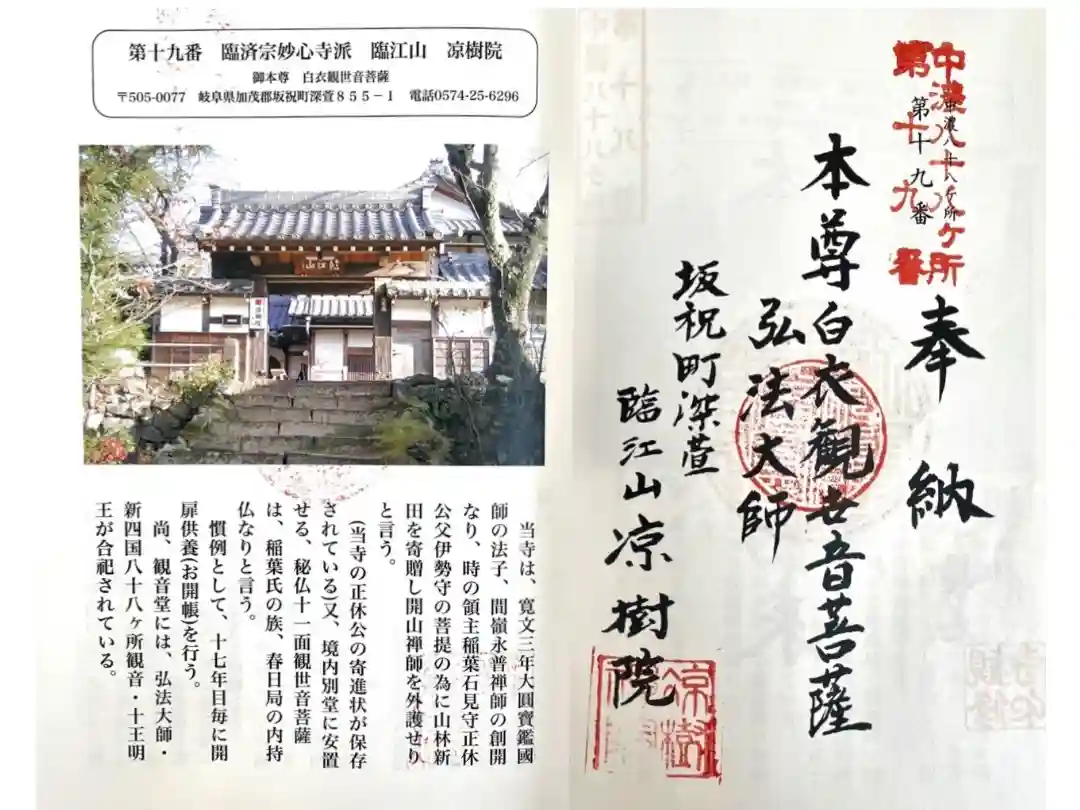 第十九番　臨済宗妙心寺派　臨江山　凉樹院
御本尊　白衣観世音菩薩
〒505-0077　岐阜県加茂郡坂祝町深萱８５５－１　電話0574-25-6296
臨江山
当寺は、寛文三年大圓寳鑑國
師の法子、間嶺永普禅師の創開
なり、時の領主稲葉石見守正休
公父伊勢守の菩提の為に山林新
田を寄贈し開山禅師を外護せり
と言う。
(当寺の正休公の寄進状が保存
されている)又、境内別堂に安置
せる、秘仏十一面観世音菩薩
は、稲葉氏の族、春日局の内持
仏なりと言う。
慣例として、十七年目毎に開
扉供養(お開帳)を行う。
尚、観音堂には、弘法大師・
新四国八十八ヶ所観音・十王明
王が合祀されている。
中濃八十八ヶ所
第十九番
中濃八十八ヶ所
第十九番
奉納
本尊白衣觀世音菩薩
弘法大師
坂祝町深萱
臨江山凉樹院
凉樹